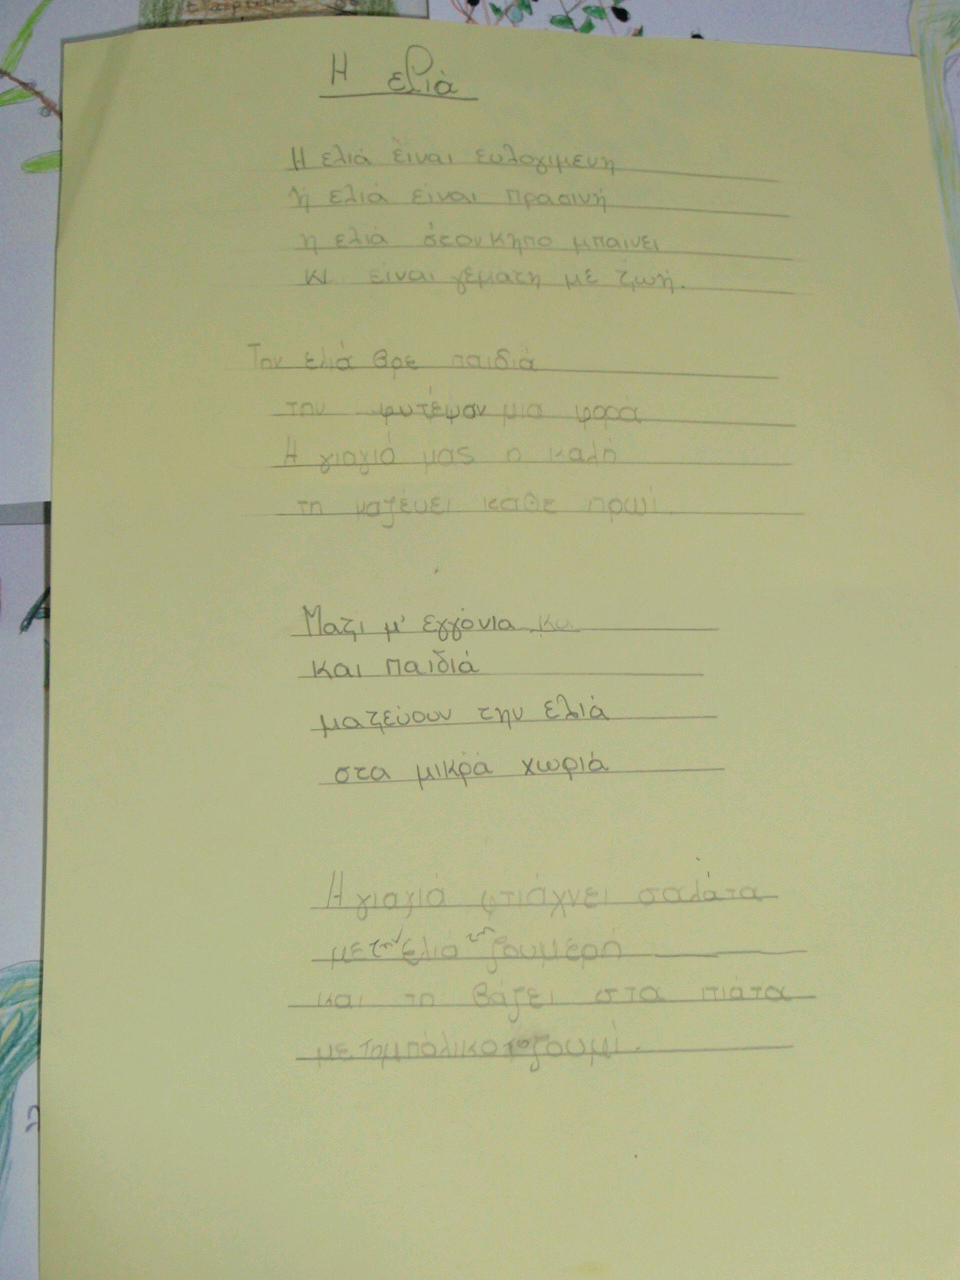 Η ελιά
Η ελιά είναι ευλογιμενη
ή ελιά είναι πρασινή
η ελιά στον κηπο μπαινει
κι είναι γεματη με ζωή.
Την ελιά βρε παιδιά
την φυτέψαν μια φορά
Η γιαγιά μας η καλή
τη μαζέυει κάθε πρωί.
Μαζι μ' εγγόνια και
και παιδιά
μαζεύουν την ελιά
στα μικρά χωριά
Η γιαγιά φτιάχνει σαλάτα
με την ελιά τη ζουμέρή
και τη βάζει στα πιάτα
με ζουμί.